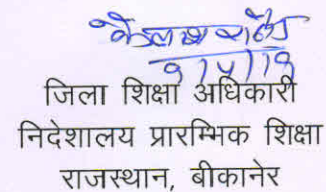 9/4/19
जिला शिक्षा अधिकारी
निदेशालय प्रारम्भिक शिक्षा
राजस्थान, बीकानेर